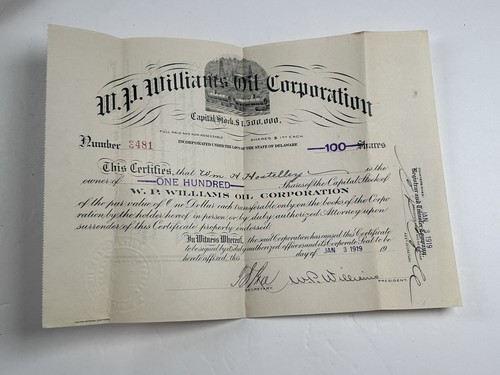 W. P. Williams Oil Corporation
Capital Stock, $1,500,000.
FULL PAID AND NON-ASSESSABLE SHARES $1.00 EACH
INCORPORATED UNDER THE LAWS OF THE STATE OF DELAWARE
Number 3481 100 Shares
This Certifies, that Wm H Hostetler is the
owner of ONE HUNDRED Shares of the Capital Stock of
W. P. WILLIAMS OIL CORPORATION
of the par value of One Dollar each transferable only on the books of the Corpo-
ration by the holder hereof in person or by duly authorized Attorney upon
surrender of this Certificate properly endorsed.
In Witness Whereof, the said Corporation has caused this Certificate
to be signed by its duly authorized officers and its Corporate Seal to be
hereto affixed this day of JAN 3 1919 19
W. P. Williams
SECRETARY PRESIDENT
JAN 3 1919